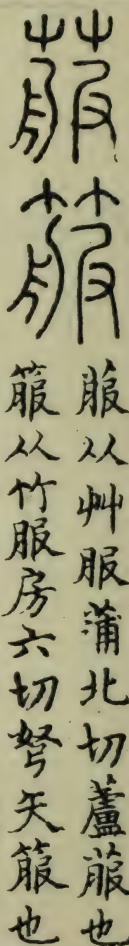 菔
箙
菔从艸服蒲北切蘆菔也
箙从竹服房六切弩矢箙也